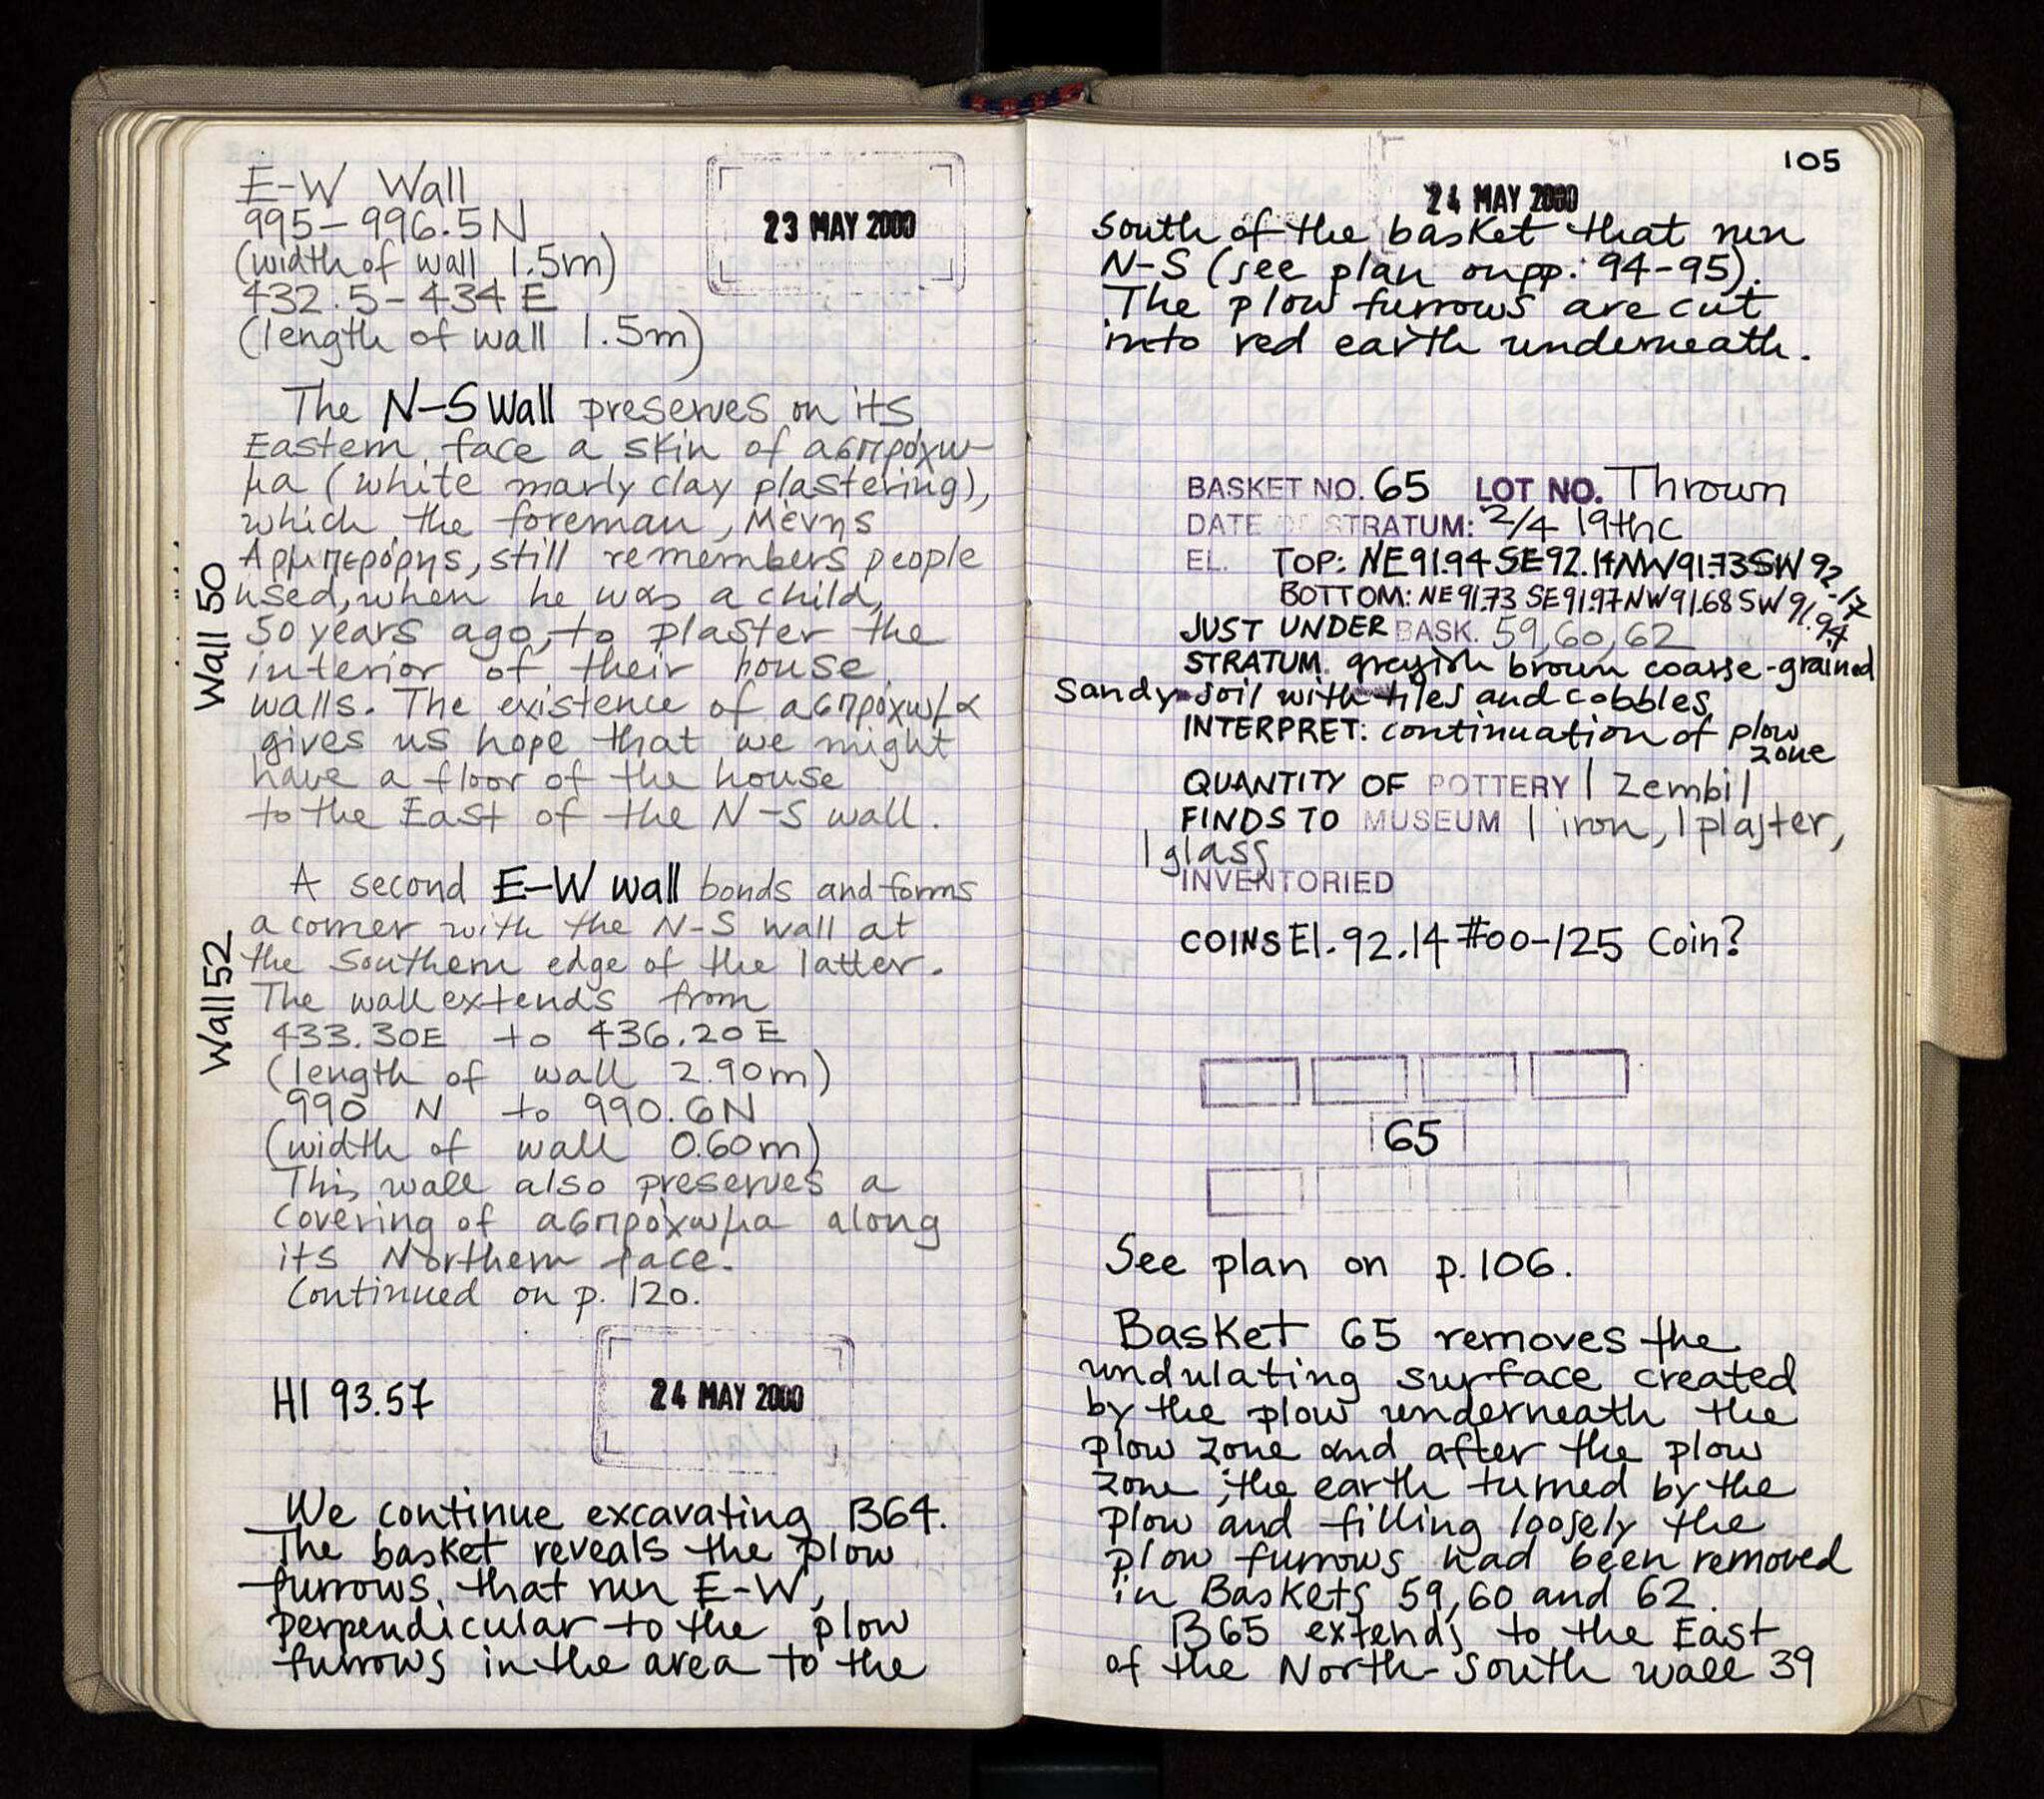 E-W Wall
995-996.5N
(width of wall 1.5m)
432.5-434 E
(length of wall 1.5m)
23 MAY 2000
The N-S Wall preserves on its
Eastern face a skin of ασπρόχω-
μα (white marly clay plastering),
which the foreman,
still remembers people
used, when he was a child,
50 years ago, to plaster the
interior of their house
walls. The existence of ασπρόχωμα
gives us hope that we might
have a floor of the house
to the East of the N-S wall.
Wall 50
A second E-W wall bonds and forms
a corner with the N-S wall at
the Southern edge of the latter.
The wall extends from
433.30E to 436.20E
(length of wall 2.90m)
990 N to 990.6N
(width of wall 0.60m)
This wall also preserves a
covering of ασπρόχωμα along
its Northern face.
Continued on p. 120.
Wall 52
HI 93.57
24 MAY 2000
We continue excavating B64.
The basket reveals the plow
furrows that run E-W,
perpendicular to the plow
furrows in the area to the
105
24 MAY 2000
South of the basket that run
N-S (see plan on pp. 94-95).
The plow furrows are cut
into red earth underneath.
BASKET NO. 65 LOT NO. Thrown
DATE OF STRATUM: 2/4 19thc
EL. TOP: NE91.94 SE92.14 NW91.73 SW 92.17
BOTTOM: NE91.73 SE91.97 NW91.68 SW 91.94
JUST UNDER BASK. 59,60,62
STRATUM. greyish brown coarse-grained
sandy soil with tiles and cobbles
INTERPRET: continuation of plow
zone
QUANTITY OF POTTERY 1 zembil
FINDS TO MUSEUM 1 iron, 1 plaster,
1 glass
INVENTORIED
COINS El. 92.14 #00-125 Coin?
65
See plan on p. 106.
Basket 65 removes the
undulating surface created
by the plow underneath the
plow zone and after the plow
zone, the earth turned by the
plow and filling loosely the
plow furrows had been removed
in Baskets 59,60 and 62.
B65 extends to the East
of the North-South wall 39